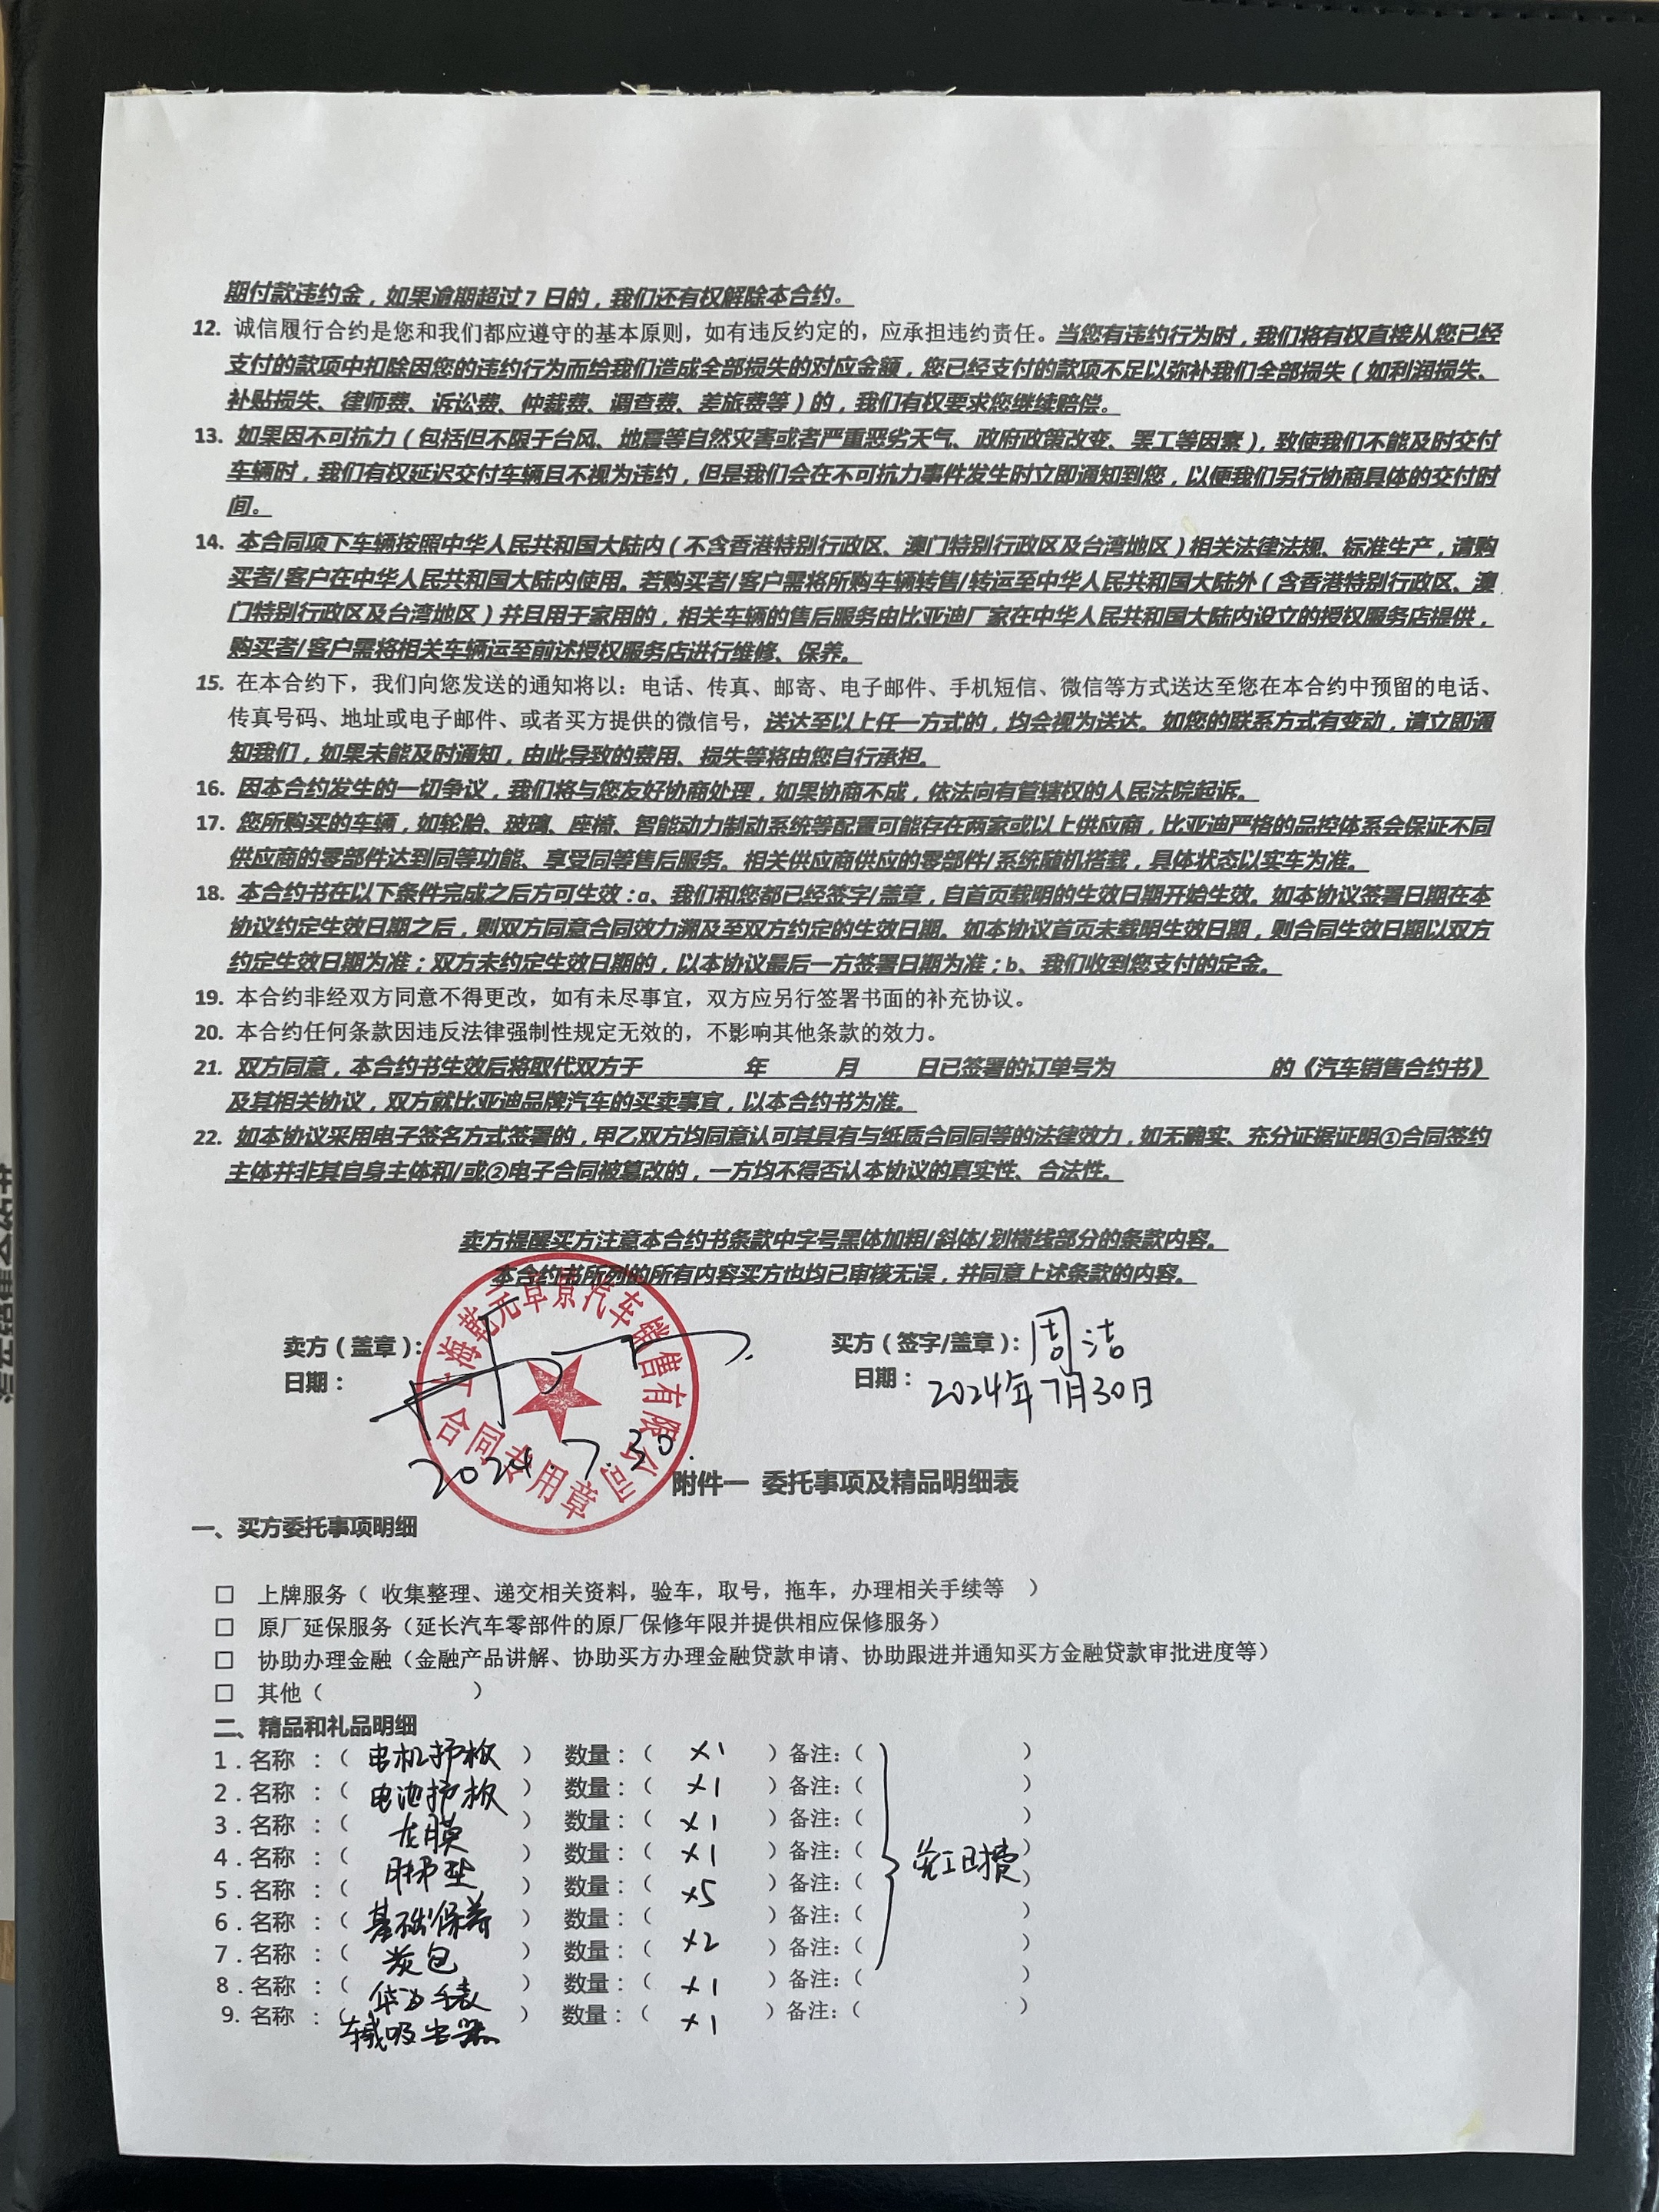 期付款违约金，如果逾期超过7日的，我们还有权解除本合约。
12. 诚信履行合约是您和我们都应遵守的基本原则，如有违反约定的，应承担违约责任。当您有违约行为时，我们将有权直接从您已经
支付的款项中扣除因您的违约行为而给我们造成全部损失的对应金额，您已经支付的款项不足以弥补我们全部损失（如利润损失、
补贴损失、律师费、诉讼费、仲裁费、调查费、差旅费等）的，我们有权要求您继续赔偿。
13. 如果因不可抗力（包括但不限于台风、地震等自然灾害或者严重恶劣天气、政府政策改变、罢工等因素），致使我们不能及时交付
车辆时，我们有权延迟交付车辆且不视为违约，但是我们会在不可抗力事件发生时立即通知到您，以便我们另行协商具体的交付时
间。
14. 本合同项下车辆按照中华人民共和国大陆内（不含香港特别行政区、澳门特别行政区及台湾地区）相关法律法规、标准生产，请购
买者/客户在中华人民共和国大陆内使用。若购买者/客户需将所购车辆转售/转运至中华人民共和国大陆外（含香港特别行政区、澳
门特别行政区及台湾地区）并且用于家用的，相关车辆的售后服务由比亚迪厂家在中华人民共和国大陆内设立的授权服务店提供，
购买者/客户需将相关车辆运至前述授权服务店进行维修、保养。
15. 在本合约下，我们向您发送的通知将以：电话、传真、邮寄、电子邮件、手机短信、微信等方式送达至您在本合约中预留的电话、
传真号码、地址或电子邮件、或者买方提供的微信号，送达至以上任一方式的，均会视为送达。如您的联系方式有变动，请立即通
知我们，如果未能及时通知，由此导致的费用、损失等将由您自行承担。
16. 因本合约发生的一切争议，我们将与您友好协商处理，如果协商不成，依法向有管辖权的人民法院起诉。
17. 您所购买的车辆，如轮胎、玻璃、座椅、智能动力制动系统等配置可能存在两家或以上供应商，比亚迪严格的品控体系会保证不同
供应商的零部件达到同等功能、享受同等售后服务。相关供应商供应的零部件/系统随机搭载，具体状态以实车为准。
18. 本合约书在以下条件完成之后方可生效：a、我们和您都已经签字/盖章，自首页载明的生效日期开始生效。如本协议签署日期在本
协议约定生效日期之后，则双方同意合同效力溯及至双方约定的生效日期。如本协议首页未载明生效日期，则合同生效日期以双方
约定生效日期为准；双方未约定生效日期的，以本协议最后一方签署日期为准；b、我们收到您支付的定金。
19. 本合约非经双方同意不得更改，如有未尽事宜，双方应另行签署书面的补充协议。
20. 本合约任何条款因违反法律强制性规定无效的，不影响其他条款的效力。
21. 双方同意，本合约书生效后将取代双方于 年 月 日已签署的订单号为 的《汽车销售合约书》
及其相关协议，双方就比亚迪品牌汽车的买卖事宜，以本合约书为准。
22. 如本协议采用电子签名方式签署的，甲乙双方均同意认可其具有与纸质合同同等的法律效力，如无确实、充分证据证明①合同签约
主体并非其自身主体和/或②电子合同被篡改的，一方均不得否认本协议的真实性、合法性。
卖方提醒买方注意本合约书条款中字号黑体加粗/斜体/划横线部分的条款内容。
本合约书所列的所有内容买方也均已审核无误，并同意上述条款的内容。
卖方（盖章）： 买方（签字/盖章）：周洁
日期：2024.7.30. 日期：2024年7月30日
上海乾元草景汽车销售有限公司
合同专用章
附件一 委托事项及精品明细表
一、买方委托事项明细
□ 上牌服务（ 收集整理、递交相关资料，验车，取号，拖车，办理相关手续等 ）
□ 原厂延保服务（延长汽车零部件的原厂保修年限并提供相应保修服务）
□ 协助办理金融（金融产品讲解、协助买方办理金融贷款申请、协助跟进并通知买方金融贷款审批进度等）
□ 其他（ ）
二、精品和礼品明细
1. 名称 ：（ 电机护板 ） 数量：（ ×1 ）备注：（ ）
2. 名称 ：（ 电池护板 ） 数量：（ ×1 ）备注：（ ）
3. 名称 ：（ 龙膜 ） 数量：（ ×1 ）备注：（ ）
4. 名称 ：（ 脚垫 ） 数量：（ ×1 ）备注：（ 免工时费 ）
5. 名称 ：（ ） 数量：（ ×5 ）备注：（ ）
6. 名称 ：（ 基础保养 ） 数量：（ ）备注：（ ）
7. 名称 ：（ 炭包 ） 数量：（ ×2 ）备注：（ ）
8. 名称 ：（ 华为手表 ） 数量：（ ×1 ）备注：（ ）
9. 名称 ：（ 车载吸尘器 ） 数量：（ ×1 ）备注：（ ）